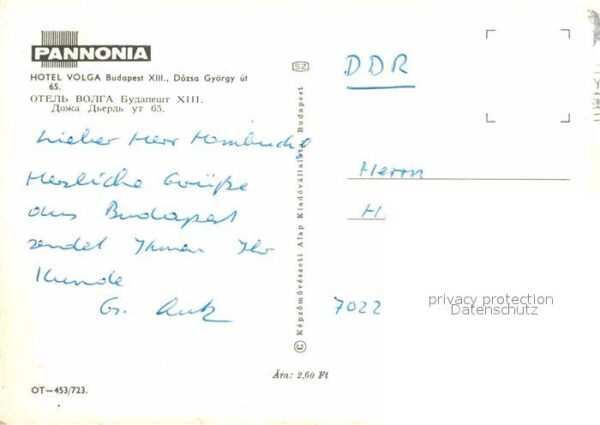 PANNONIA
HOTEL VOLGA Budapest XIII., Dózsa György út
65.
ОТЕЛЬ ВОЛГА Будапешт XIII.
Дожа Дьердь ут 65.
Lieber Herr
Herzliche Grüße
aus Budapest
sendet Ihnen Ihr
Kunde
G.
OT—453/723.
SZ
© Képzőművészeti Alap Kiadóvállalata, Budapest
Ára: 2,60 Ft
DDR
Herrn
H.
7022
privacy protection
Datenschutz